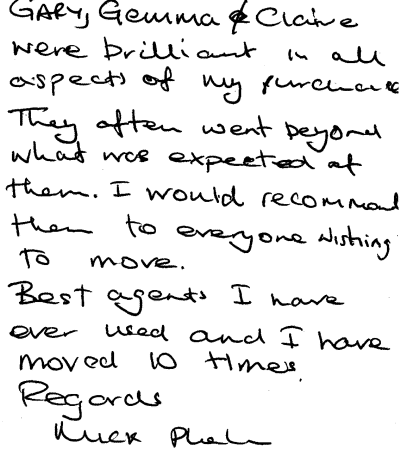 GARY, Gemma & Claire
were brilliant in all
aspects of my purchase
They often went beyond
what was expected of
them. I would recommend
them to everyone wishing
To move.
Best agents I have
ever used and I have
moved 10 times.
Regards